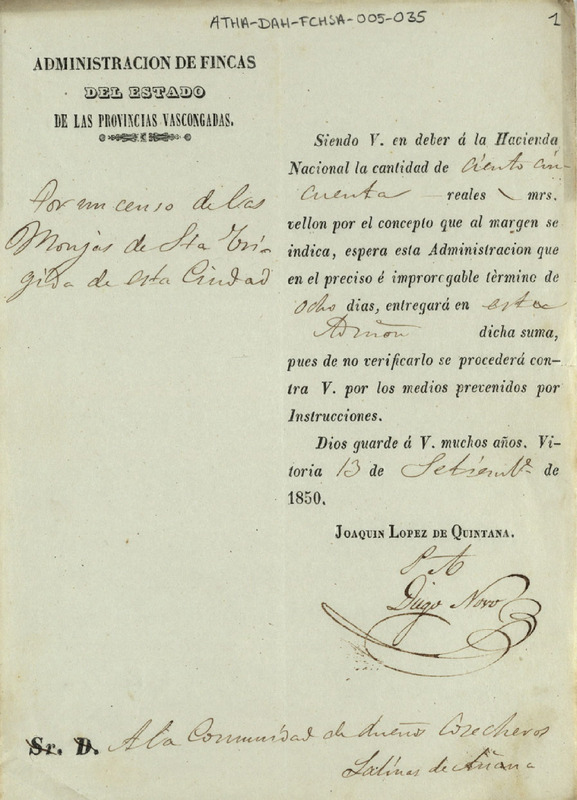 ATHA-DAH-FCHSA-005-035
1
ADMINISTRACION DE FINCAS
DEL ESTADO
DE LAS PROVINCIAS VASCONGADAS.
Por un censo de las
Monjas de Sta Bri-
gida de esta Ciudad
Siendo V. en deber á la Hacienda
Nacional la cantidad de Ciento cin
cuenta reales mrs.
vellon por el concepto que al margen se
indica, espera esta Administracion que
en el preciso é improrogable tèrmino de
ocho dias, entregará en esta
Admon dicha suma,
pues de no verificarlo se procederá con-
tra V. por los medios prevenidos por
Instrucciones.
Dios guarde á V. muchos años. Vi-
toria 13 de Setiembe. de
1850.
JOAQUIN LOPEZ DE QUINTANA.
P A
Diego Novo
Sr. D. A la Comunidad de dueños Cosecheros
Salinas de Añana